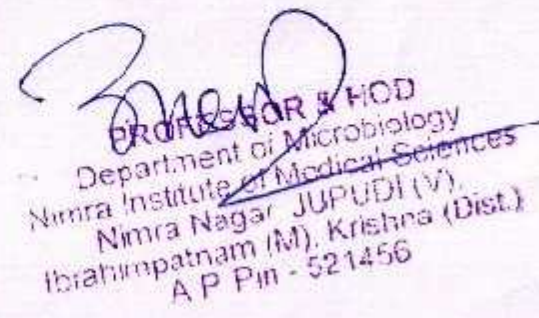 PROFESSOR & HOD
Department of Microbiology
Nimra Institute of Medical Sciences
Nimra Nagar JUPUDI (V),
Ibrahimpatnam (M), Krishna (Dist.)
A P Pin - 521456